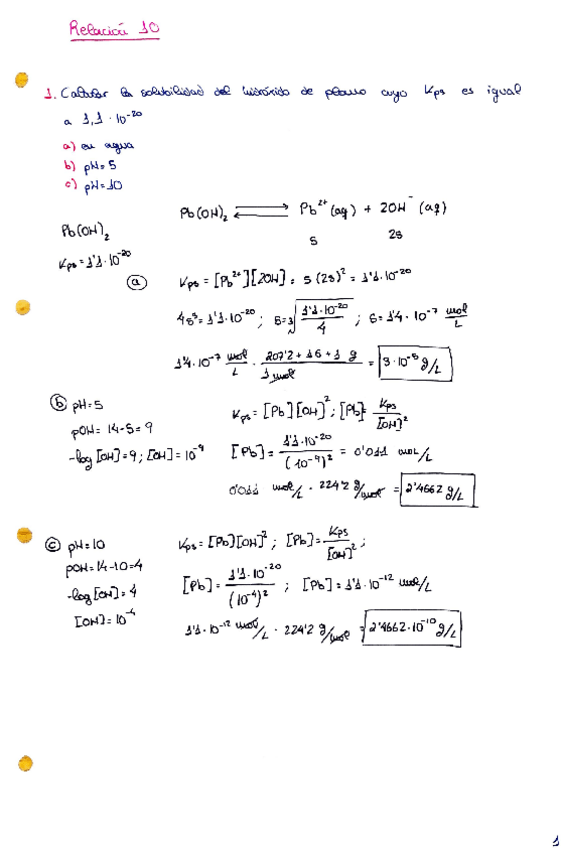 Relación 10
1. Calcular la solubilidad del hidróxido de plomo cuyo Kps es igual
a 1,1 · 10⁻²⁰
a) en agua
b) pH = 5
c) pH = 10
Pb(OH)₂ ⇄ Pb²⁺ (aq) + 2OH⁻ (aq)
s 2s
Pb(OH)₂
Kps = 1'1·10⁻²⁰
a Kps = [Pb²⁺][2OH] = s (2s)² = 1'1·10⁻²⁰
4s³ = 1'1·10⁻²⁰ ; s = ³√(1'1·10⁻²⁰ / 4) ; s = 1'4 · 10⁻⁷ mol/L
1'4·10⁻⁷ mol/L · (207'2 + 16 + 1 g / 1 mol) = 3·10⁻⁵ g/L
b pH = 5
pOH = 14-5 = 9
-log [OH] = 9 ; [OH] = 10⁻⁹
Kps = [Pb][OH]² ; [Pb] = Kps / [OH]²
[Pb] = 1'1·10⁻²⁰ / (10⁻⁹)² = 0'011 mol/L
0'011 mol/L · 224'2 g/mol = 2'4662 g/L
c pH = 10
pOH = 14-10 = 4
-log [OH] = 4
[OH] = 10⁻⁴
Kps = [Pb][OH]² ; [Pb] = Kps / [OH]² ;
[Pb] = 1'1·10⁻²⁰ / (10⁻⁴)² ; [Pb] = 1'1·10⁻¹² mol/L
1'1·10⁻¹² mol/L · 224'2 g/mol = 2'4662·10⁻¹⁰ g/L
1